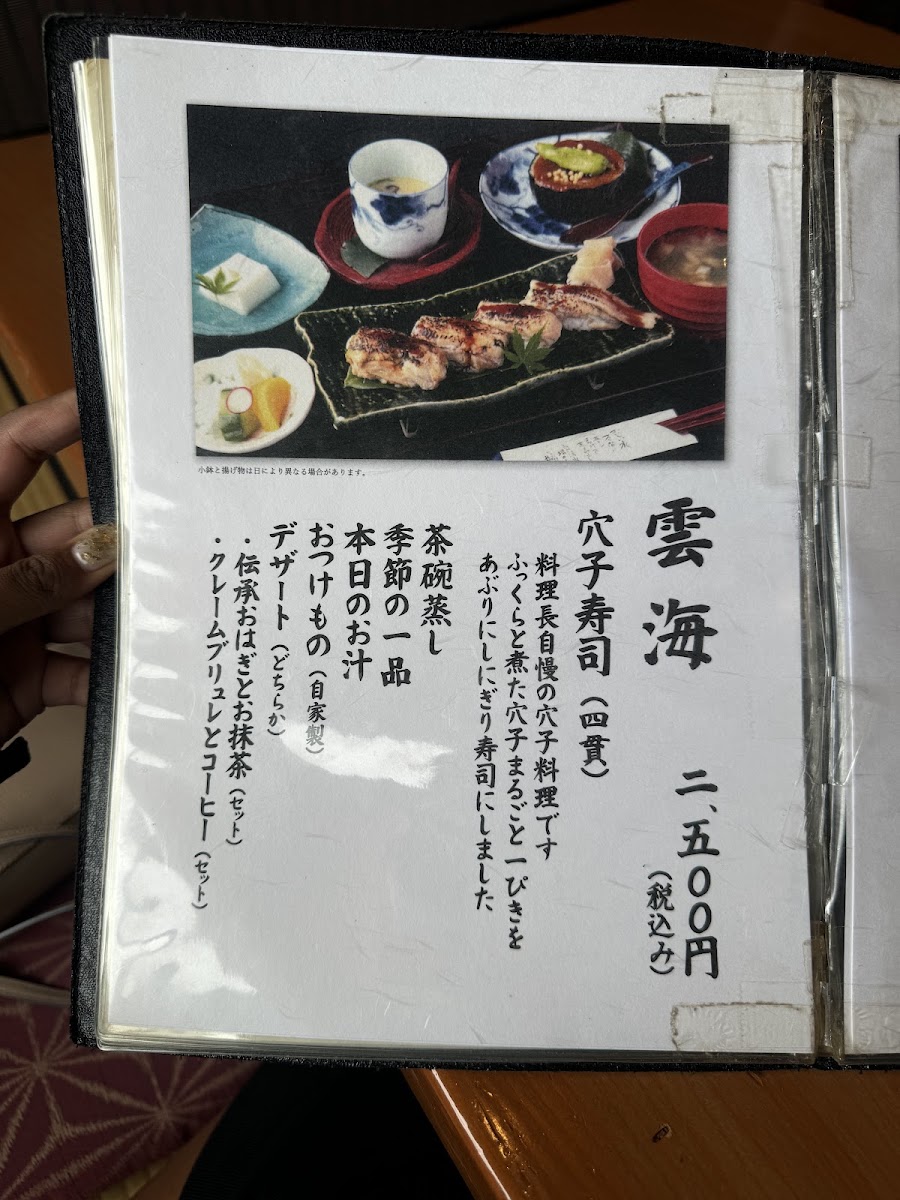 小鉢と揚げ物は日により異なる場合があります。
雲海
二、五〇〇円
(税込み)
穴子寿司(四貫)
料理長自慢の穴子料理です
ふっくらと煮た穴子まるごと一ぴきを
あぶりにしにぎり寿司にしました
茶碗蒸し
季節の一品
本日のお汁
おつけもの(自家製)
デザート(どちらか)
・伝承おはぎとお抹茶(セット)
・クレームブリュレとコーヒー(セット)